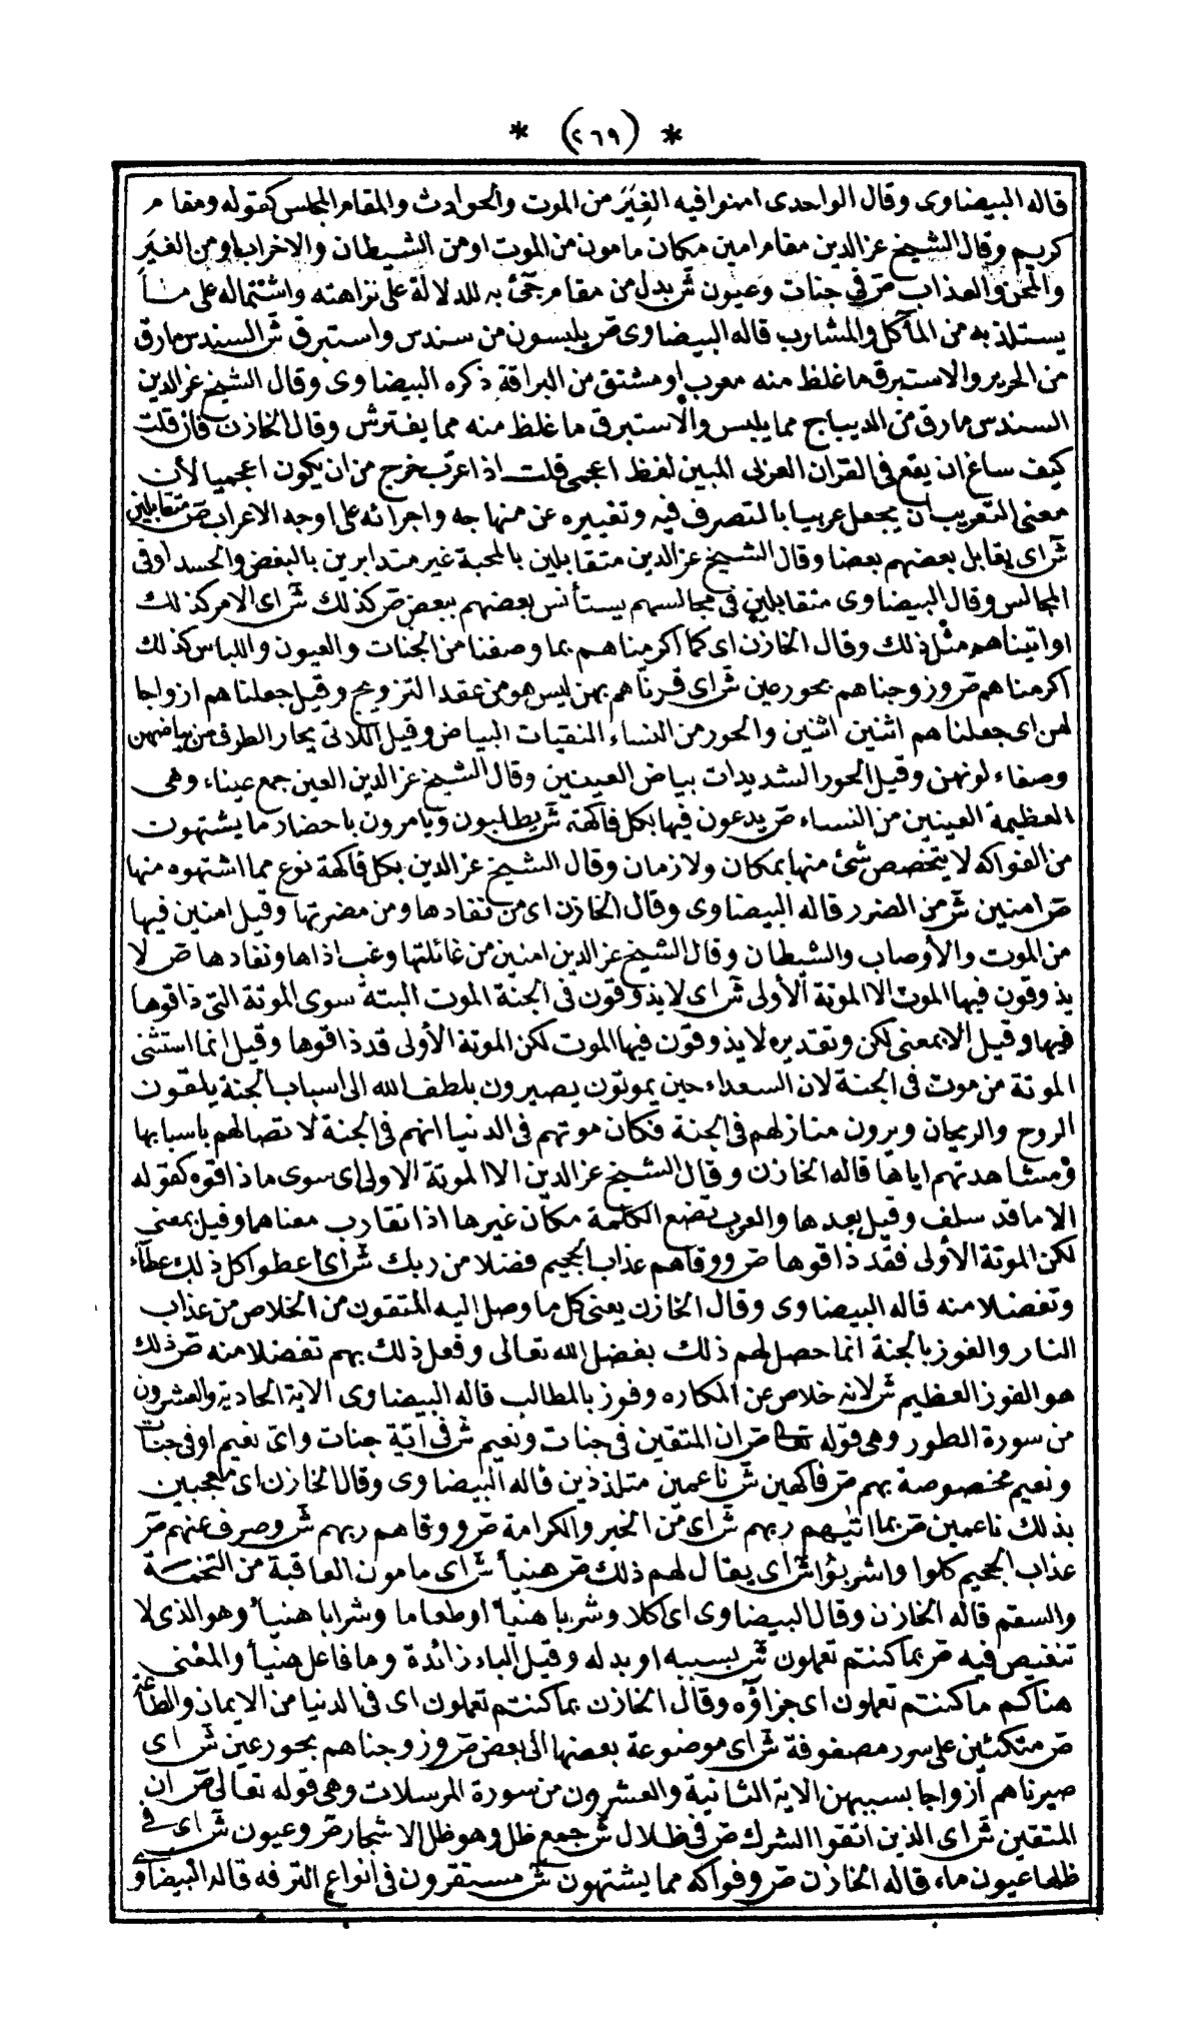 * (٢٦٩) *
قاله البيضاوى وقال الواحدى امنوا فيه الغِيَرَ من الموت والحوادث والمقام المجلس كقوله ومقام
كريم وقال الشيخ عز الدين مقام امين مكان مامون من الموت اومن الشيطان والاخراب اومن الغِيَرِ
والمحن والعذاب صَ فى جنات وعيون شَ بدل من مقام جئ به للدلالة على نزاهته واشتماله على مــا
يستلذ به من المآكل والمشارب قاله البيضاوى صَ يلبسون من سندس واستبرق شَ السندس مارق
من الحرير والاستبرق ما غلظ منه معرب او مشتق من البراقة ذكره البيضاوى وقال الشيخ عز الدين
السندس مارق من الديباج مما يلبس والاستبرق ما غلظ منه مما يفترش وقال الخازن فان قلت
كيف ساغ ان يقع فى القران العربى المبين لفظ اعجمى قلت اذا عرّب خرج من ان يكون اعجميا لأن
معنى التعريب ان يجعل عربيا بالتصرف فيه وتغييره عن منهاجه واجرائه على اوجه الاعراب صَ متقابلين
شَ اى يقابل بعضهم بعضا وقال الشيخ عز الدين متقابلين بالمحبة غير متدابرين بالبغض والحسد اوفى
المجالس وقال البيضاوى متقابلين فى مجالسهم يستأنس بعضهم ببعض صَ كذلك شَ اى الامر كذلك
اواتيناهم مثل ذلك وقال الخازن اى كما اكرمناهم بما وصفنا من الجنات والعيون واللباس كذلك
اكرمناهم صَ وزوجناهم بحور عين شَ اى قرناهم بهن ليس هو من عقد التزويج وقيل جعلناهم ازواجا
لهن اى جعلناهم اثنين اثنين والحور من النساء النقيات البياض وقيل اللاتى يحار الطرف من بياضهن
وصفاء لونهن وقيل الحور الشديدات بياض العينين وقال الشيخ عز الدين العين جمع عيناء وهى
العظيمة العينين من النساء صَ يدعون فيها بكل فاكهة شَ يطلبون ويأمرون باحضار ما يشتهون
من الفواكه لا يتخصص شئ منها بمكان ولا زمان وقال الشيخ عز الدين بكل فاكهة نوع مما اشتهوه منها
صَ امنين شَ من الضرر قاله البيضاوى وقال الخازن اى من نفادها ومن مضرتها وقيل امنين فيها
من الموت والأوصاب والشيطان وقال الشيخ عز الدين امنين من غائلتها وغب اذاها ونفادها صَ لا
يذوقون فيها الموت الا الموتة الأولى شَ اى لا يذوقون فى الجنة الموت البتة سوى الموتة التى ذاقوها
فيها وقيل الا بمعنى لكن وتقديره لا يذوقون فيها الموت لكن الموتة الأولى قد ذاقوها وقيل انما استثنى
الموتة من موت فى الجنة لان السعداء حين يموتون يصيرون بلطف الله الى اسباب الجنة يلقون
الروح والريحان ويرون منازلهم فى الجنة فكان موتهم فى الدنيا انهم فى الجنة لاتصالهم باسبابها
ومشاهدتهم اياها قاله الخازن وقال الشيخ عز الدين الا الموتة الاولى اى سوى ما ذاقوه كقوله
الا ما قد سلف وقيل بعدها والعرب تضع الكلمة مكان غيرها اذا تقارب معناهما وقيل بمعنى
لكن الموتة الأولى فقد ذاقوها صَ ووقاهم عذاب الجحيم فضلا من ربك شَ اى اعطوا كل ذلك عطاء
وتفضلا منه قاله البيضاوى وقال الخازن يعنى كل ما وصل اليه المتقون من الخلاص من عذاب
النار والفوز بالجنة انما حصل لهم ذلك بفضل الله تعالى وفعل ذلك بهم تفضلا منه صَ ذلك
هو الفوز العظيم شَ لانه خلاص عن المكاره وفوز بالمطالب قاله البيضاوى الاية الحادية والعشرون
من سورة الطور وهى قوله تعالى صَ ان المتقين فى جنات ونعيم شَ فى اية جنات واى نعيم او فى جنات
ونعيم مخصوصة بهم صَ فاكهين شَ ناعمين متلذذين قاله البيضاوى وقال الخازن اى معجبين
بذلك ناعمين صَ بما اتيهم ربهم شَ اى من الخير والكرامة صَ ووقاهم ربهم شَ وصرف عنهم صَ
عذاب الجحيم كلوا واشربوا شَ اى يقال لهم ذلك صَ هنيأ شَ اى مامون العاقبة من التخمة
والسقم قاله الخازن وقال البيضاوى اى اكلا وشربا هنيأ او طعاما وشرابا هنيأ وهو الذى لا
تنغيص فيه صَ بما كنتم تعملون شَ بسببه او بدله وقيل الباء زائدة وما فاعل هنيأ والمعنى
هناكم ما كنتم تعملون اى جزاؤه وقال الخازن بما كنتم تعملون اى فى الدنيا من الايمان والطاعة
صَ متكئين على سرر مصفوفة شَ اى موضوعة بعضها الى بعض صَ وزوجناهم بحور عين شَ اى
صيرناهم ازواجا بسببهن الاية الثانية والعشرون من سورة المرسلات وهى قوله تعالى صَ ان
المتقين شَ اى الذين اتقوا الشرك صَ فى ظلال شَ جمع ظل وهو ظل الاشجار صَ وعيون شَ اى فى
ظلها عيون ماء قاله الخازن صَ وفواكه مما يشتهون شَ مستقرون فى انواع الترفه قاله البيضاوى